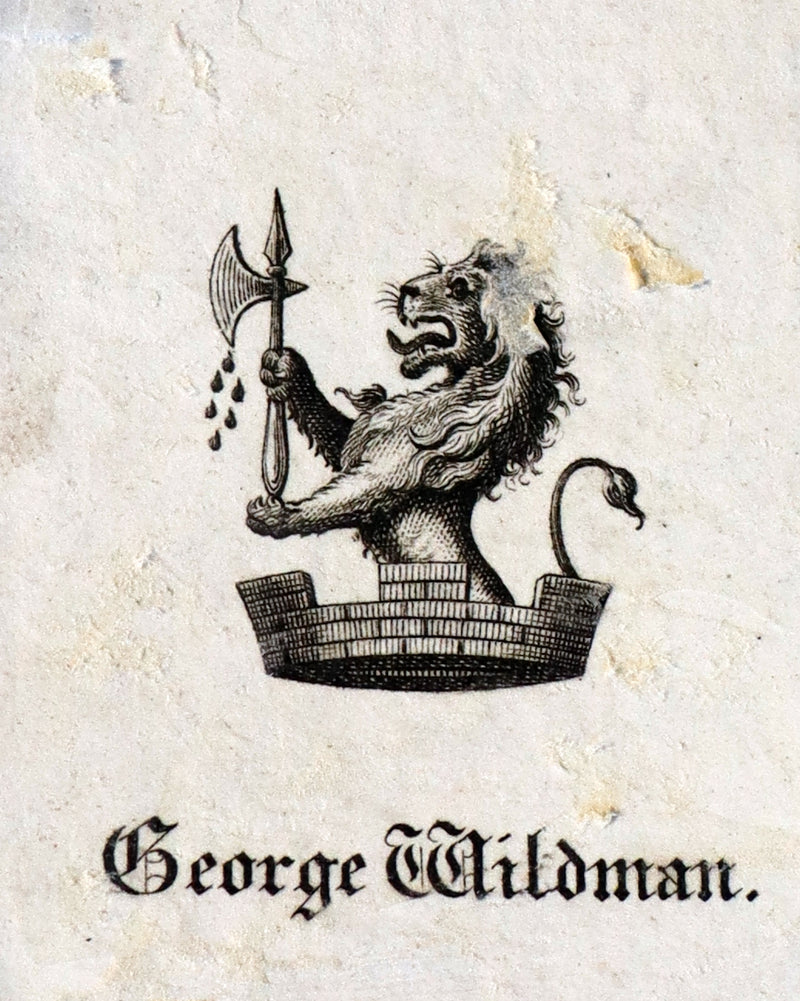 George Wildman.